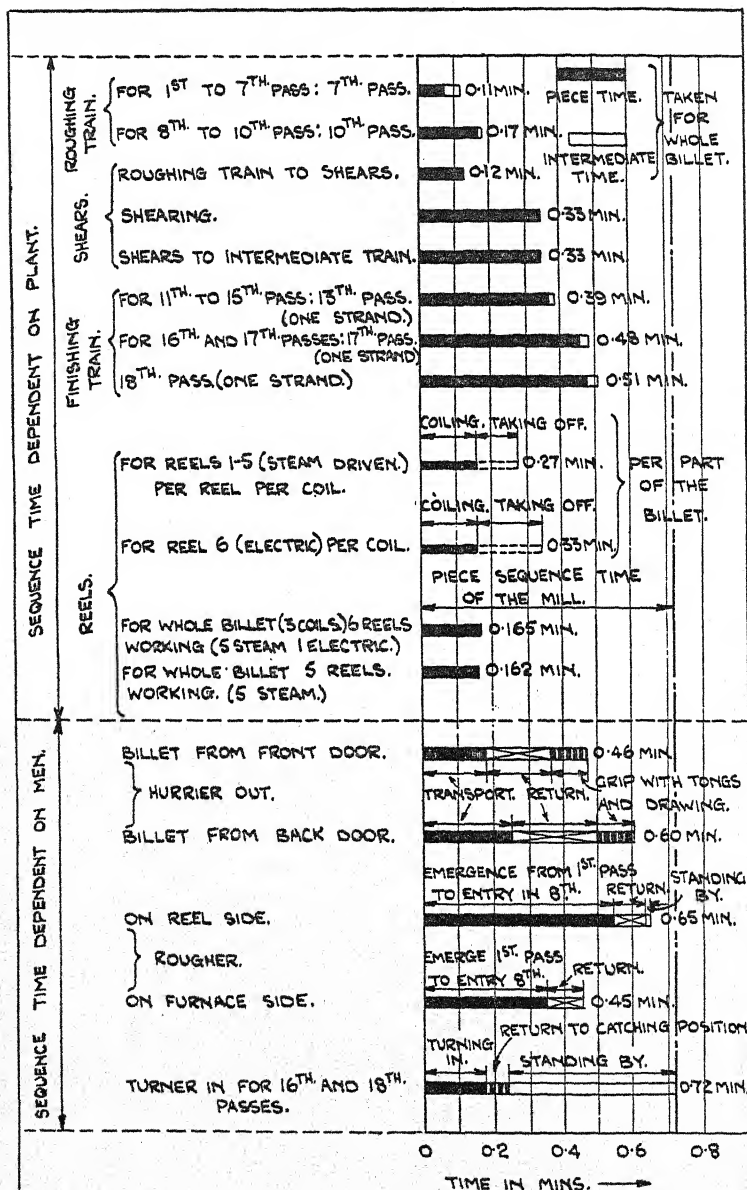 SEQUENCE TIME DEPENDENT ON PLANT.
ROUGHING TRAIN.
FOR 1ST TO 7TH. PASS: 7TH. PASS.
0.11 MIN.
FOR 8TH. TO 10TH. PASS: 10TH. PASS.
0.17 MIN.
PIECE TIME.
INTERMEDIATE TIME.
TAKEN
FOR
WHOLE
BILLET.
SHEARS.
ROUGHING TRAIN TO SHEARS.
0.12 MIN.
SHEARING.
0.33 MIN.
SHEARS TO INTERMEDIATE TRAIN.
0.33 MIN.
FINISHING TRAIN.
FOR 11TH. TO 15TH. PASS: 13TH. PASS.
(ONE STRAND.)
0.39 MIN.
FOR 16TH. AND 17TH. PASSES: 17TH. PASS.
(ONE STRAND)
0.48 MIN.
18TH. PASS. (ONE STRAND.)
0.51 MIN.
REELS.
COILING. TAKING OFF.
FOR REELS 1-5 (STEAM DRIVEN.)
PER REEL PER COIL.
0.27 MIN.
COILING. TAKING OFF.
FOR REEL 6 (ELECTRIC) PER COIL.
0.33 MIN.
PER PART
OF THE
BILLET.
PIECE SEQUENCE TIME
OF THE MILL.
FOR WHOLE BILLET (3 COILS) 6 REELS
WORKING (5 STEAM 1 ELECTRIC.)
0.165 MIN.
FOR WHOLE BILLET 5 REELS.
WORKING. (5 STEAM.)
0.162 MIN.
SEQUENCE TIME DEPENDENT ON MEN.
BILLET FROM FRONT DOOR.
0.46 MIN.
HURRIER OUT.
TRANSPORT. RETURN.
GRIP WITH TONGS
AND DRAWING.
BILLET FROM BACK DOOR.
0.60 MIN.
EMERGENCE FROM 1ST. PASS
TO ENTRY IN 8TH.
RETURN.
STANDING
BY.
ON REEL SIDE.
0.65 MIN.
ROUGHER.
EMERGE 1ST. PASS
TO ENTRY 8TH.
RETURN.
ON FURNACE SIDE.
0.45 MIN.
RETURN TO CATCHING POSITION
TURNING
IN.
STANDING BY.
TURNER IN FOR 16TH. AND 18TH.
PASSES.
0.72 MIN.
0 0.2 0.4 0.6 0.8
TIME IN MINS.